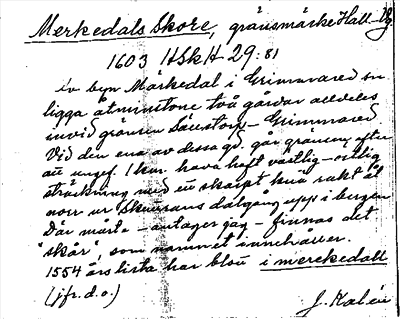 Merkedals Skore, gränsmärke Hall-Vg
1603 HSkH 29:81
I v. byn Märkedal i Grimmared sn
ligga åtminstone två gårdar alldeles
invid gränsen Sällstorp - Grimmared
Vid den ena av dessa gd. går gränsen, efter
att ungef. 1 km. hava haft västlig-ostlig
sträckning med en skarpt knä rakt åt
norr ur Skuttrans dalgång upp i bergen
Där måste - antager jag - finnas det
"skår", som namnet innehåller.
1554 års lista har blott i merekedall
(jfr. d.o.)
J. Kalén